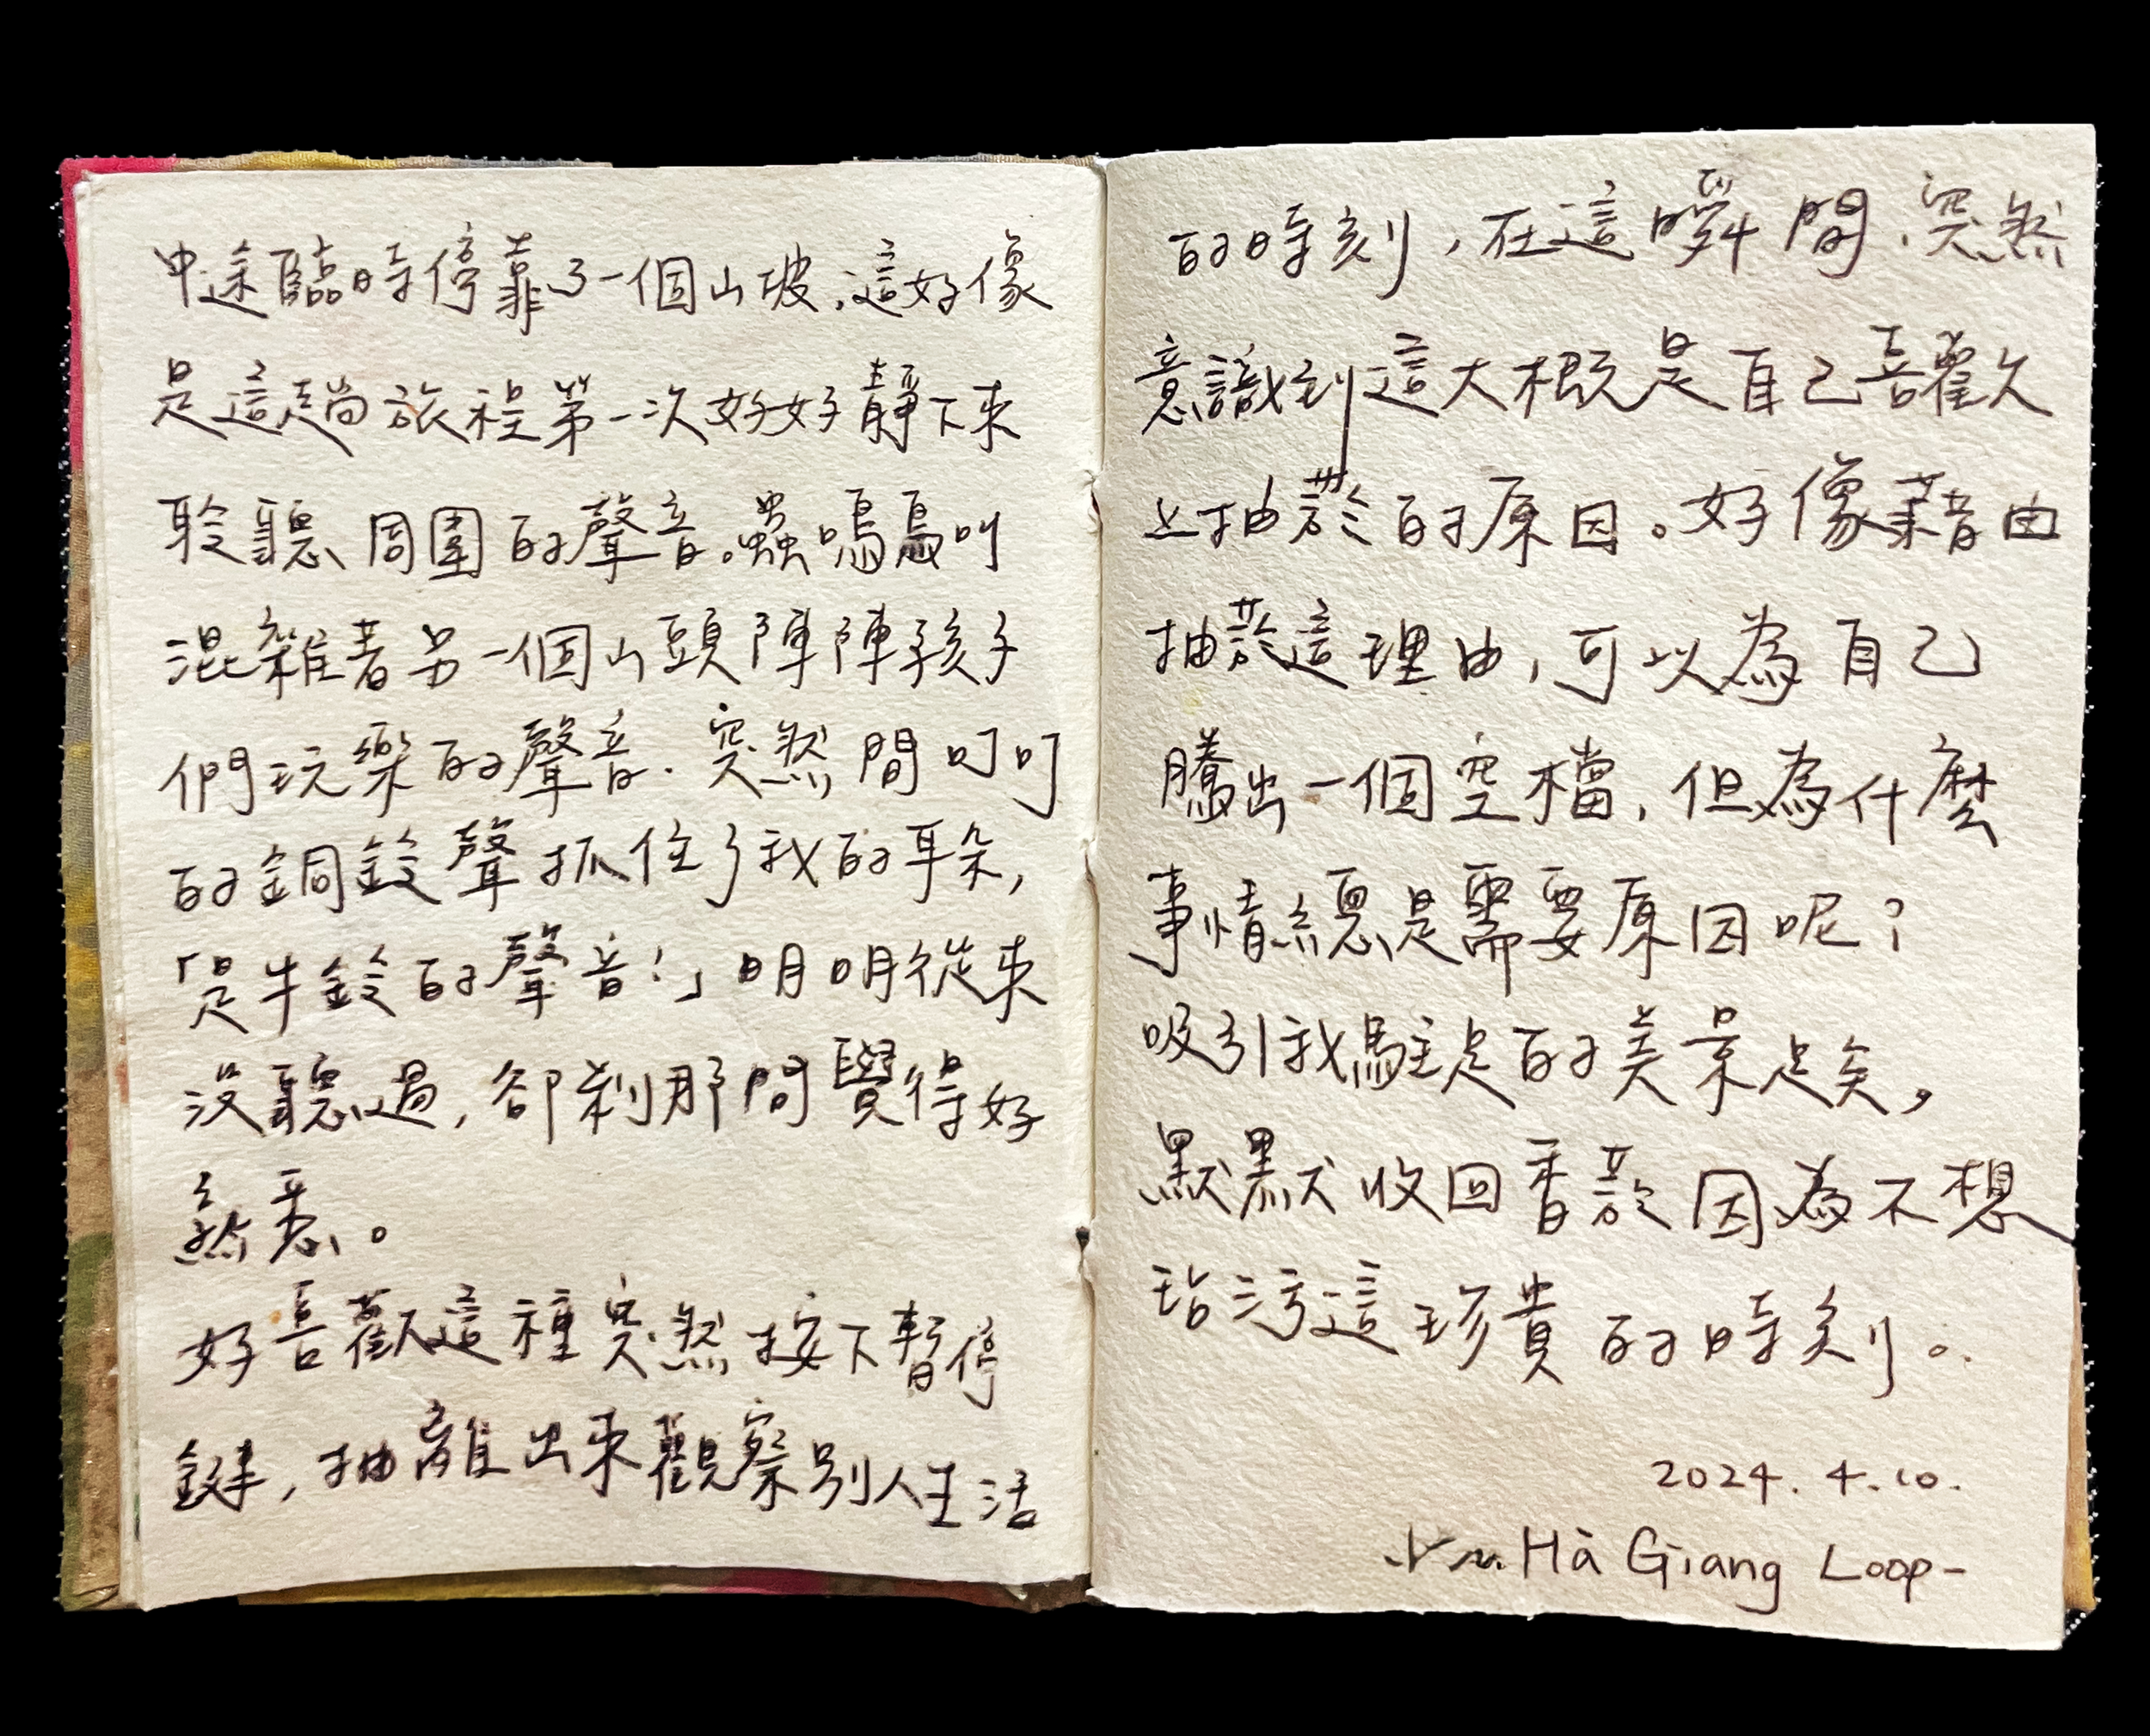 中途臨時停靠了一個山坡,這好像
是這趟旅程第一次好好靜下來
聆聽周圍的聲音。蟲鳴鳥叫
混雜著另一個山頭陣陣孩子
們玩樂的聲音.突然間叮叮
的銅鈴聲抓住了我的耳朵,
「是牛鈴的聲音!」明明從來
沒聽過,卻剎那間覺得好
熟悉。
好喜歡這種突然按下暫停
鍵,抽離出來觀察別人生活
的時刻,在這瞬間.突然
意識到這大概是自己喜歡
上抽菸的原因。好像藉由
抽菸這理由,可以為自己
騰出一個空檔,但為什麼
事情總是需要原因呢?
吸引我駐足的美景足矣,
默默收回香菸因為不想
玷污這珍貴的時刻。
2024.4.10.
Hà Giang Loop-